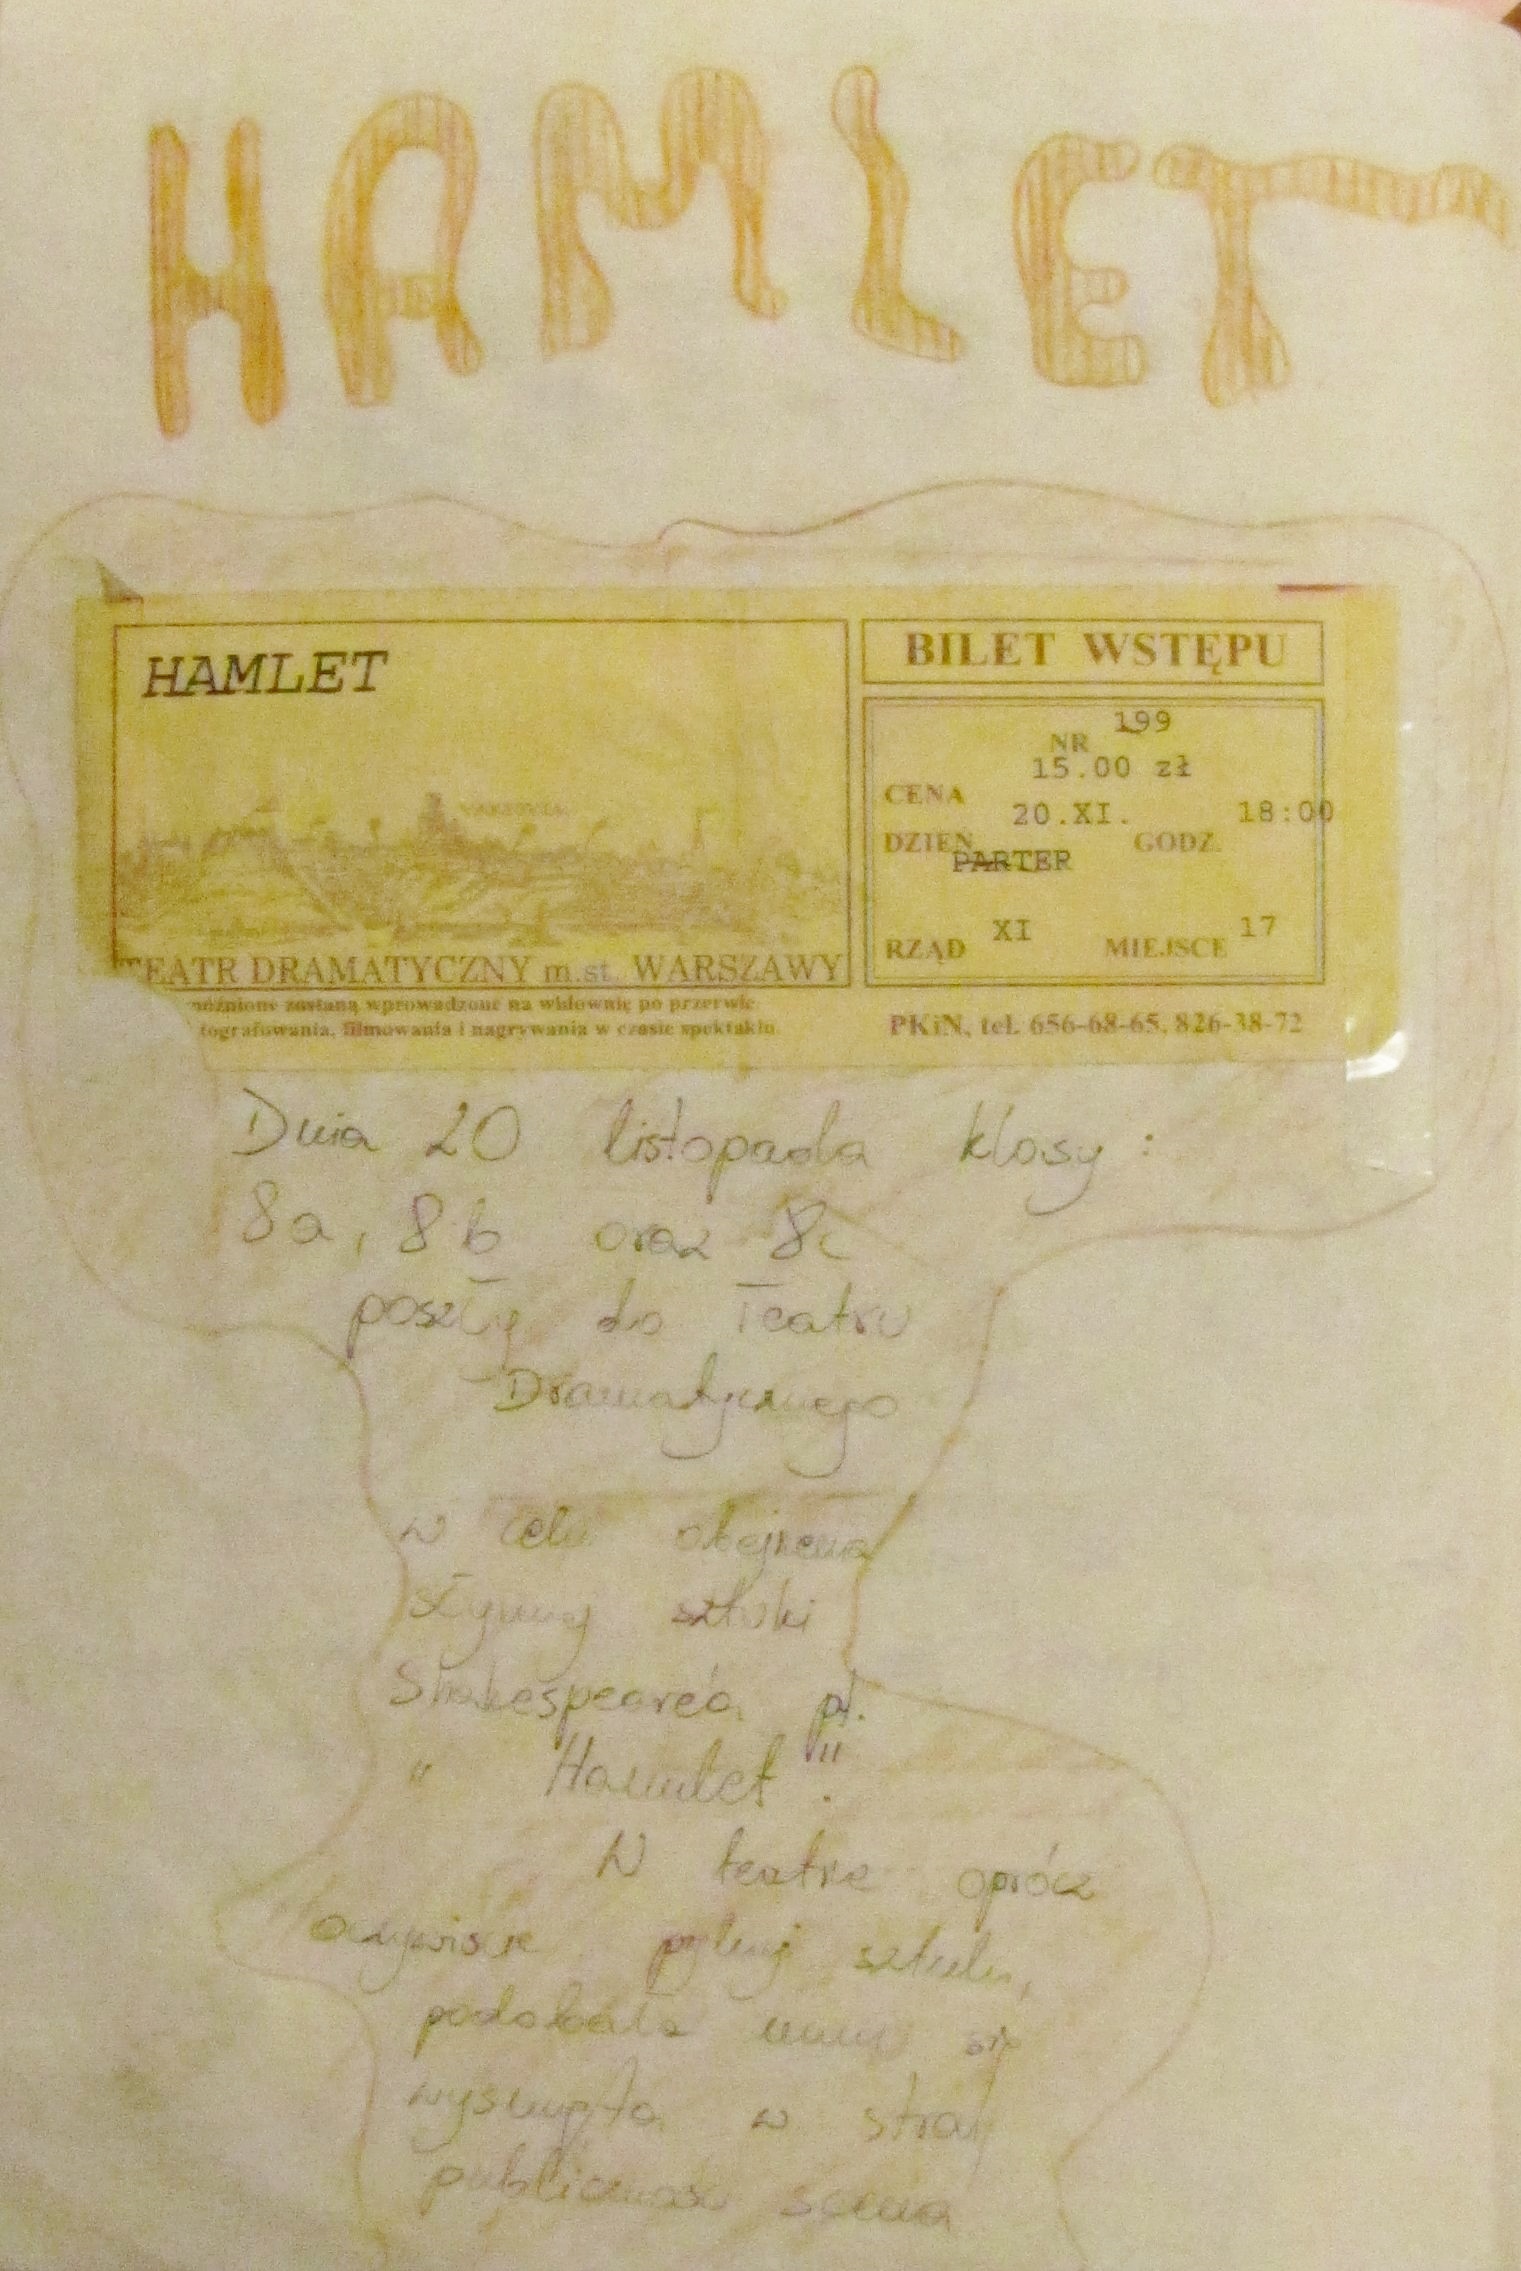 HAMLET
HAMLET
WARSZAWY
TEATR DRAMATYCZNY m.st. WARSZAWY
zostaną wprowadzone na widownię po przerwie
filmowania i nagrywania w czasie spektaklu.
BILET WSTĘPU
199
NR
15.00 zł
CENA
20.XI. 18:00
DZIEŃ GODZ.
PARTER
XI 17
RZĄD MIEJSCE
PKiN, tel. 656-68-65, 826-38-72
Dnia 20 listopada klasy:
8a, 8b oraz 8c
poszły do Teatru
Dramatycznego
w celu obejrzenia
słynnej sztuki
Shakespeare'a pt.
" Hamlet".
W teatrze oprócz
oczywiście pięknej sztuki,
podobała nam się
wysunięta w stronę
publiczności scena